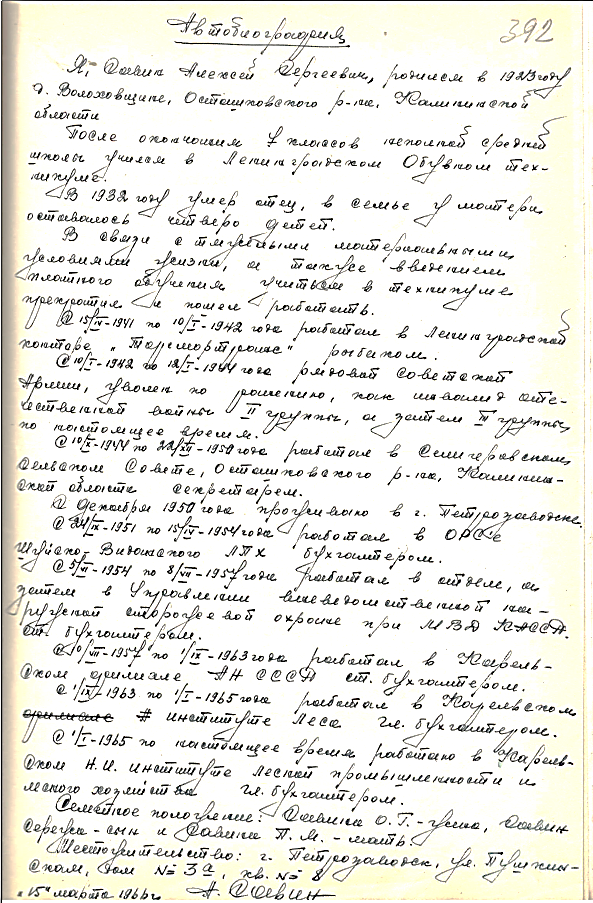 Автобиография
392
Я, Савин Алексей Сергеевич, родился в 1923 году
д. Волоховщине, Осташковского р-на, Калининской
области
После окончания 7 классов неполной средней
школы учился в Ленинградском Обувном тех-
никуме.
В 1932 году умер отец, в семье у матери
оставалось четверо детей.
В связи с тяжелыми материальными
условиями жизни, а также введением
платного обучения учиться в техникуме
прекратил и пошел работать.
С 15/IV-1941 по 10/I-1942 года работал в Ленинградской
конторе рыбаком.
С 10/I-1942 по 12/I-1944 года рядовой Советской
Армии, уволен по ранению, как инвалид оте-
чественной войны II группы, а затем III группы
по настоящее время.
С 10/X-1944 по 22/XII-1950 года работал в
Сельском Совете, Осташковского р-на, Калинин-
ской области секретарем.
С декабря 1950 года проживаю в г. Петрозаводске.
С 24/IX-1951 по 15/IV-1954 года работал в ОРСе
Шуйско-Виданского ЛПХ бухгалтером.
С 5/VI-1954 по 8/VII-1957 года работал в отделе, а
затем в Управлении вневедомственной на-
ружной сторожевой охраны при МВД КАССР.
ст. бухгалтером.
С 10/VII-1957 по 1/IX-1963 года работал в Карель-
ском филиале АН СССР ст. бухгалтером.
С 1/IX-1963 по 1/I-1965 года работал в Карельском
филиале институте Леса гл. бухгалтером.
С 1/I-1965 по настоящее время работаю в Карель-
ском Н.И. институте лесной промышленности и
лесного хозяйства гл. бухгалтером.
Семейное положение: Савина О.Г.-жена, Савин
Сережа-сын и Савина П.М.-мать.
Местожительство: г. Петрозаводск, ул. Пушкин-
ская, дом № 3а, кв. № 8
"15" марта 1966г. А. Савин